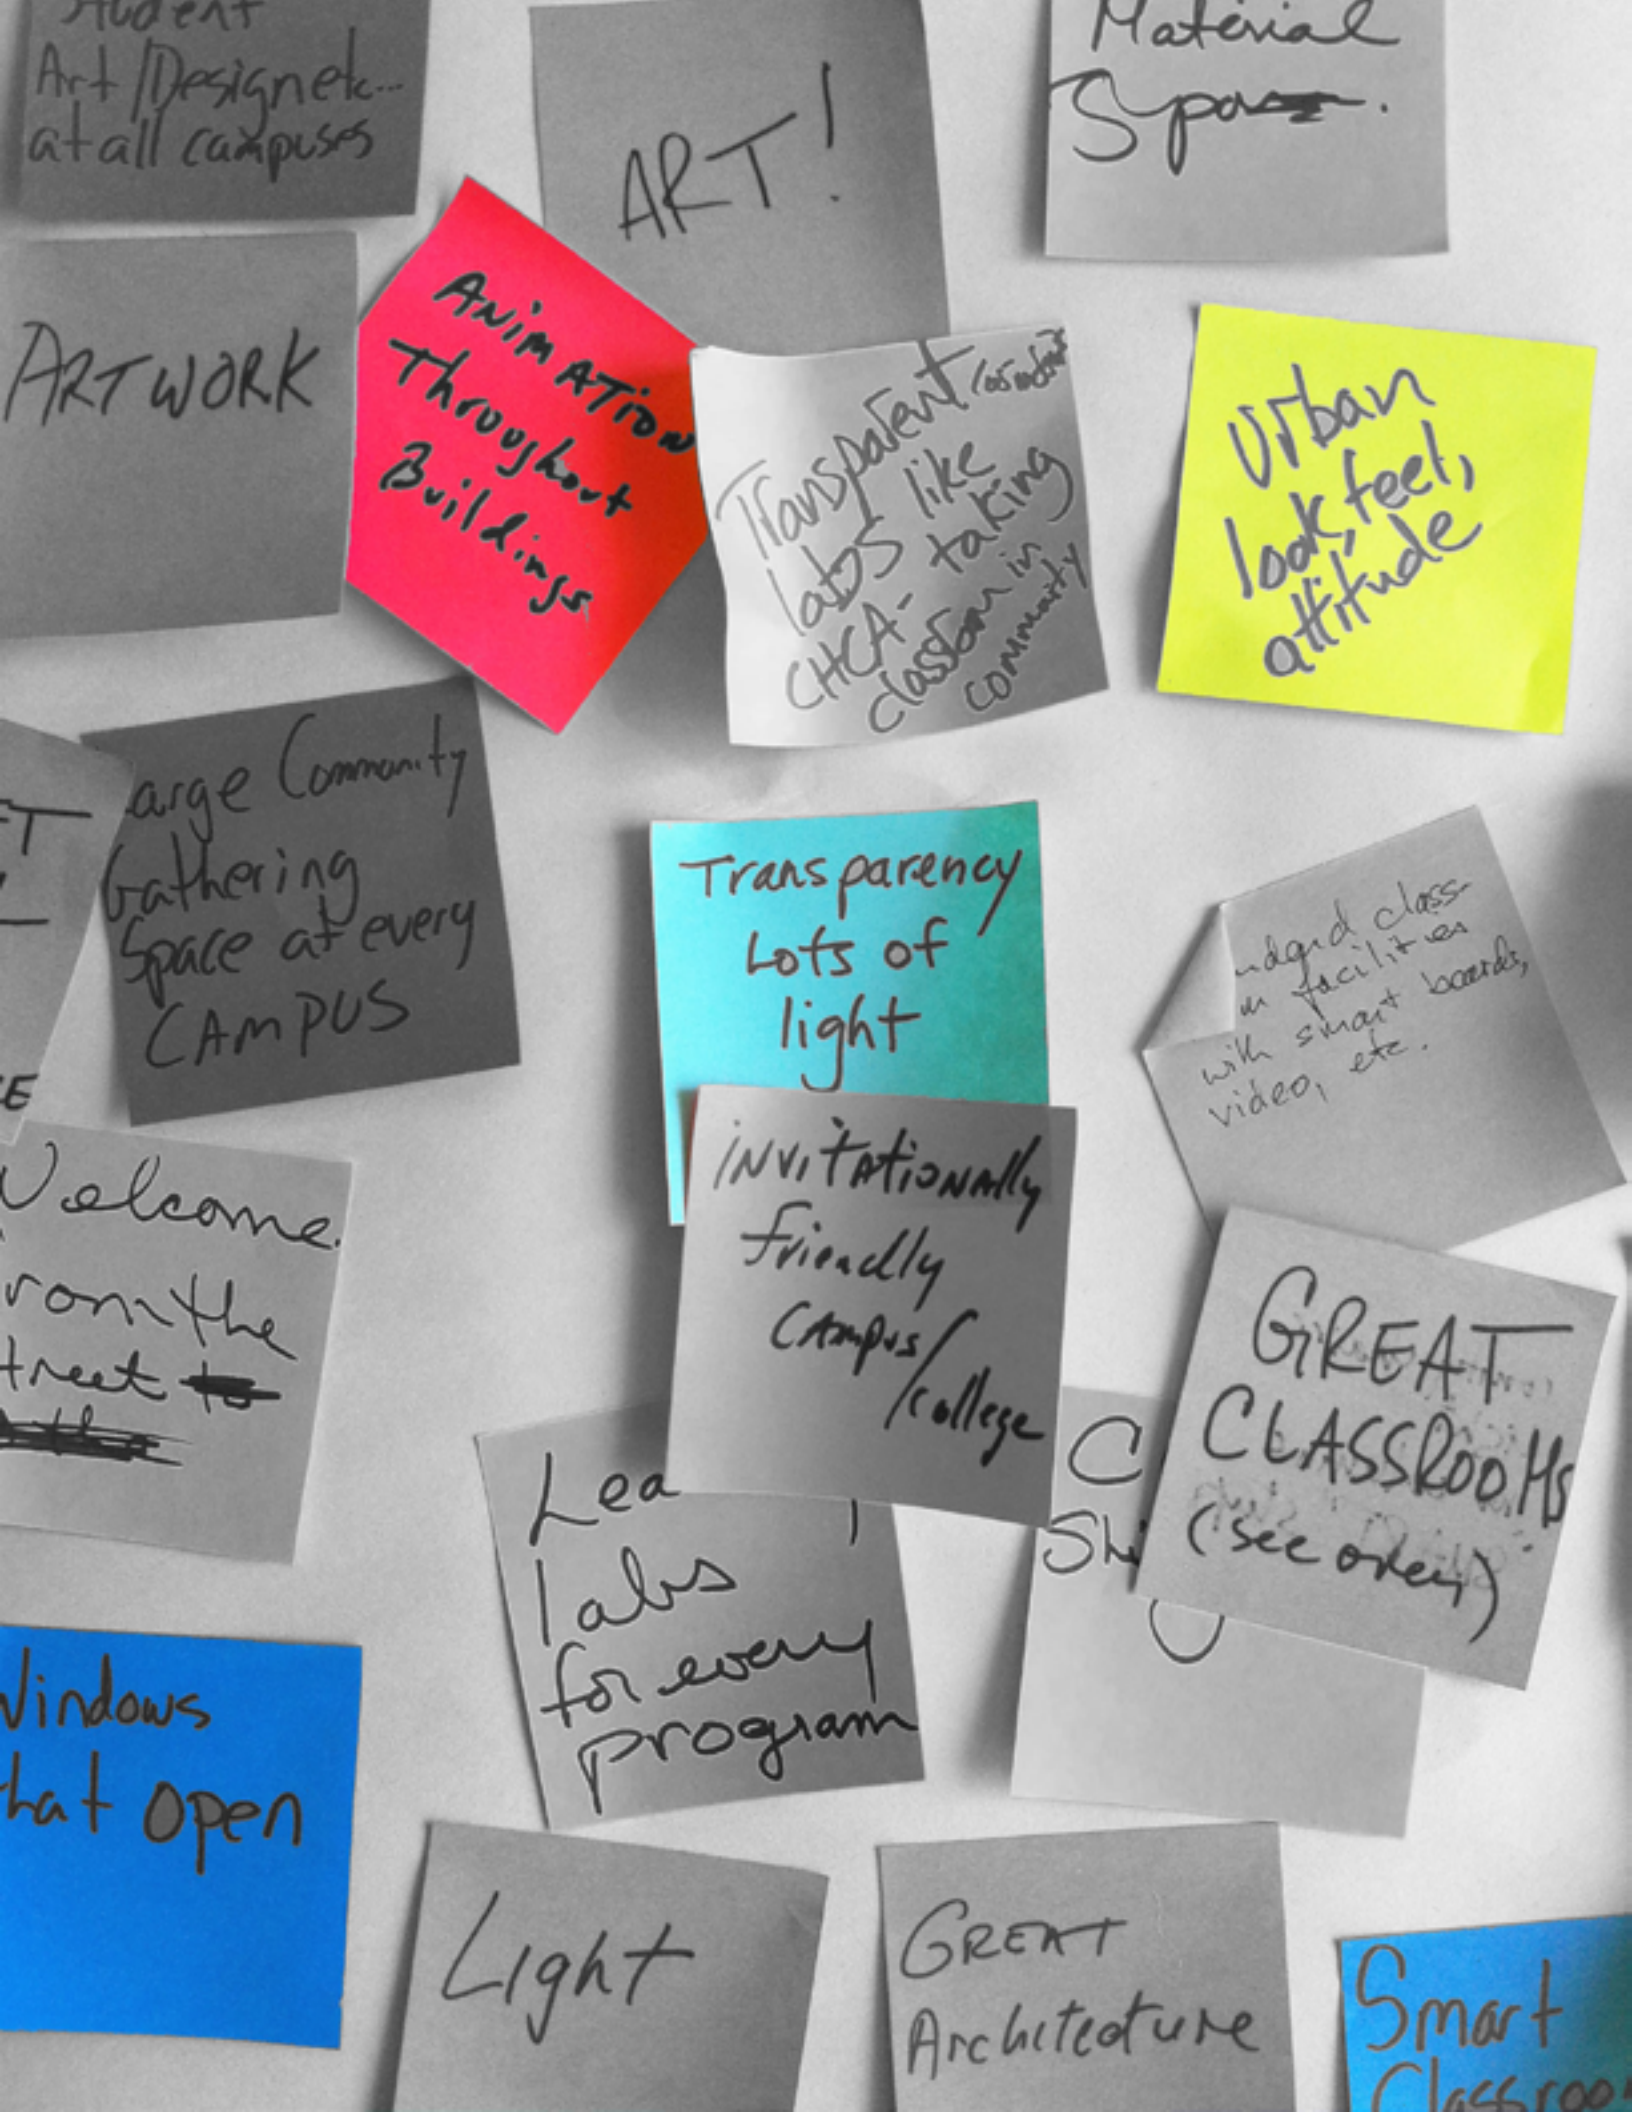 Student
Art/Design etc...
at all campuses
ART!
Material
ARTWORK
ANIMATION
Throughout
Buildings
Transparent
labs like
CHCA- taking
classroom in
community
Urban
look, feel,
attitude
Large Community
Gathering
Space at every
CAMPUS
Transparency
Lots of
light
class-
facilities
with smart boards,
video, etc.
Welcome
from the
street
invitationally
friendly
campus/
college
GREAT
CLASSROOMS
(see over)
Lea
labs
for every
program
Windows
that open
Light
GREAT
Architecture
Smart
Classroo